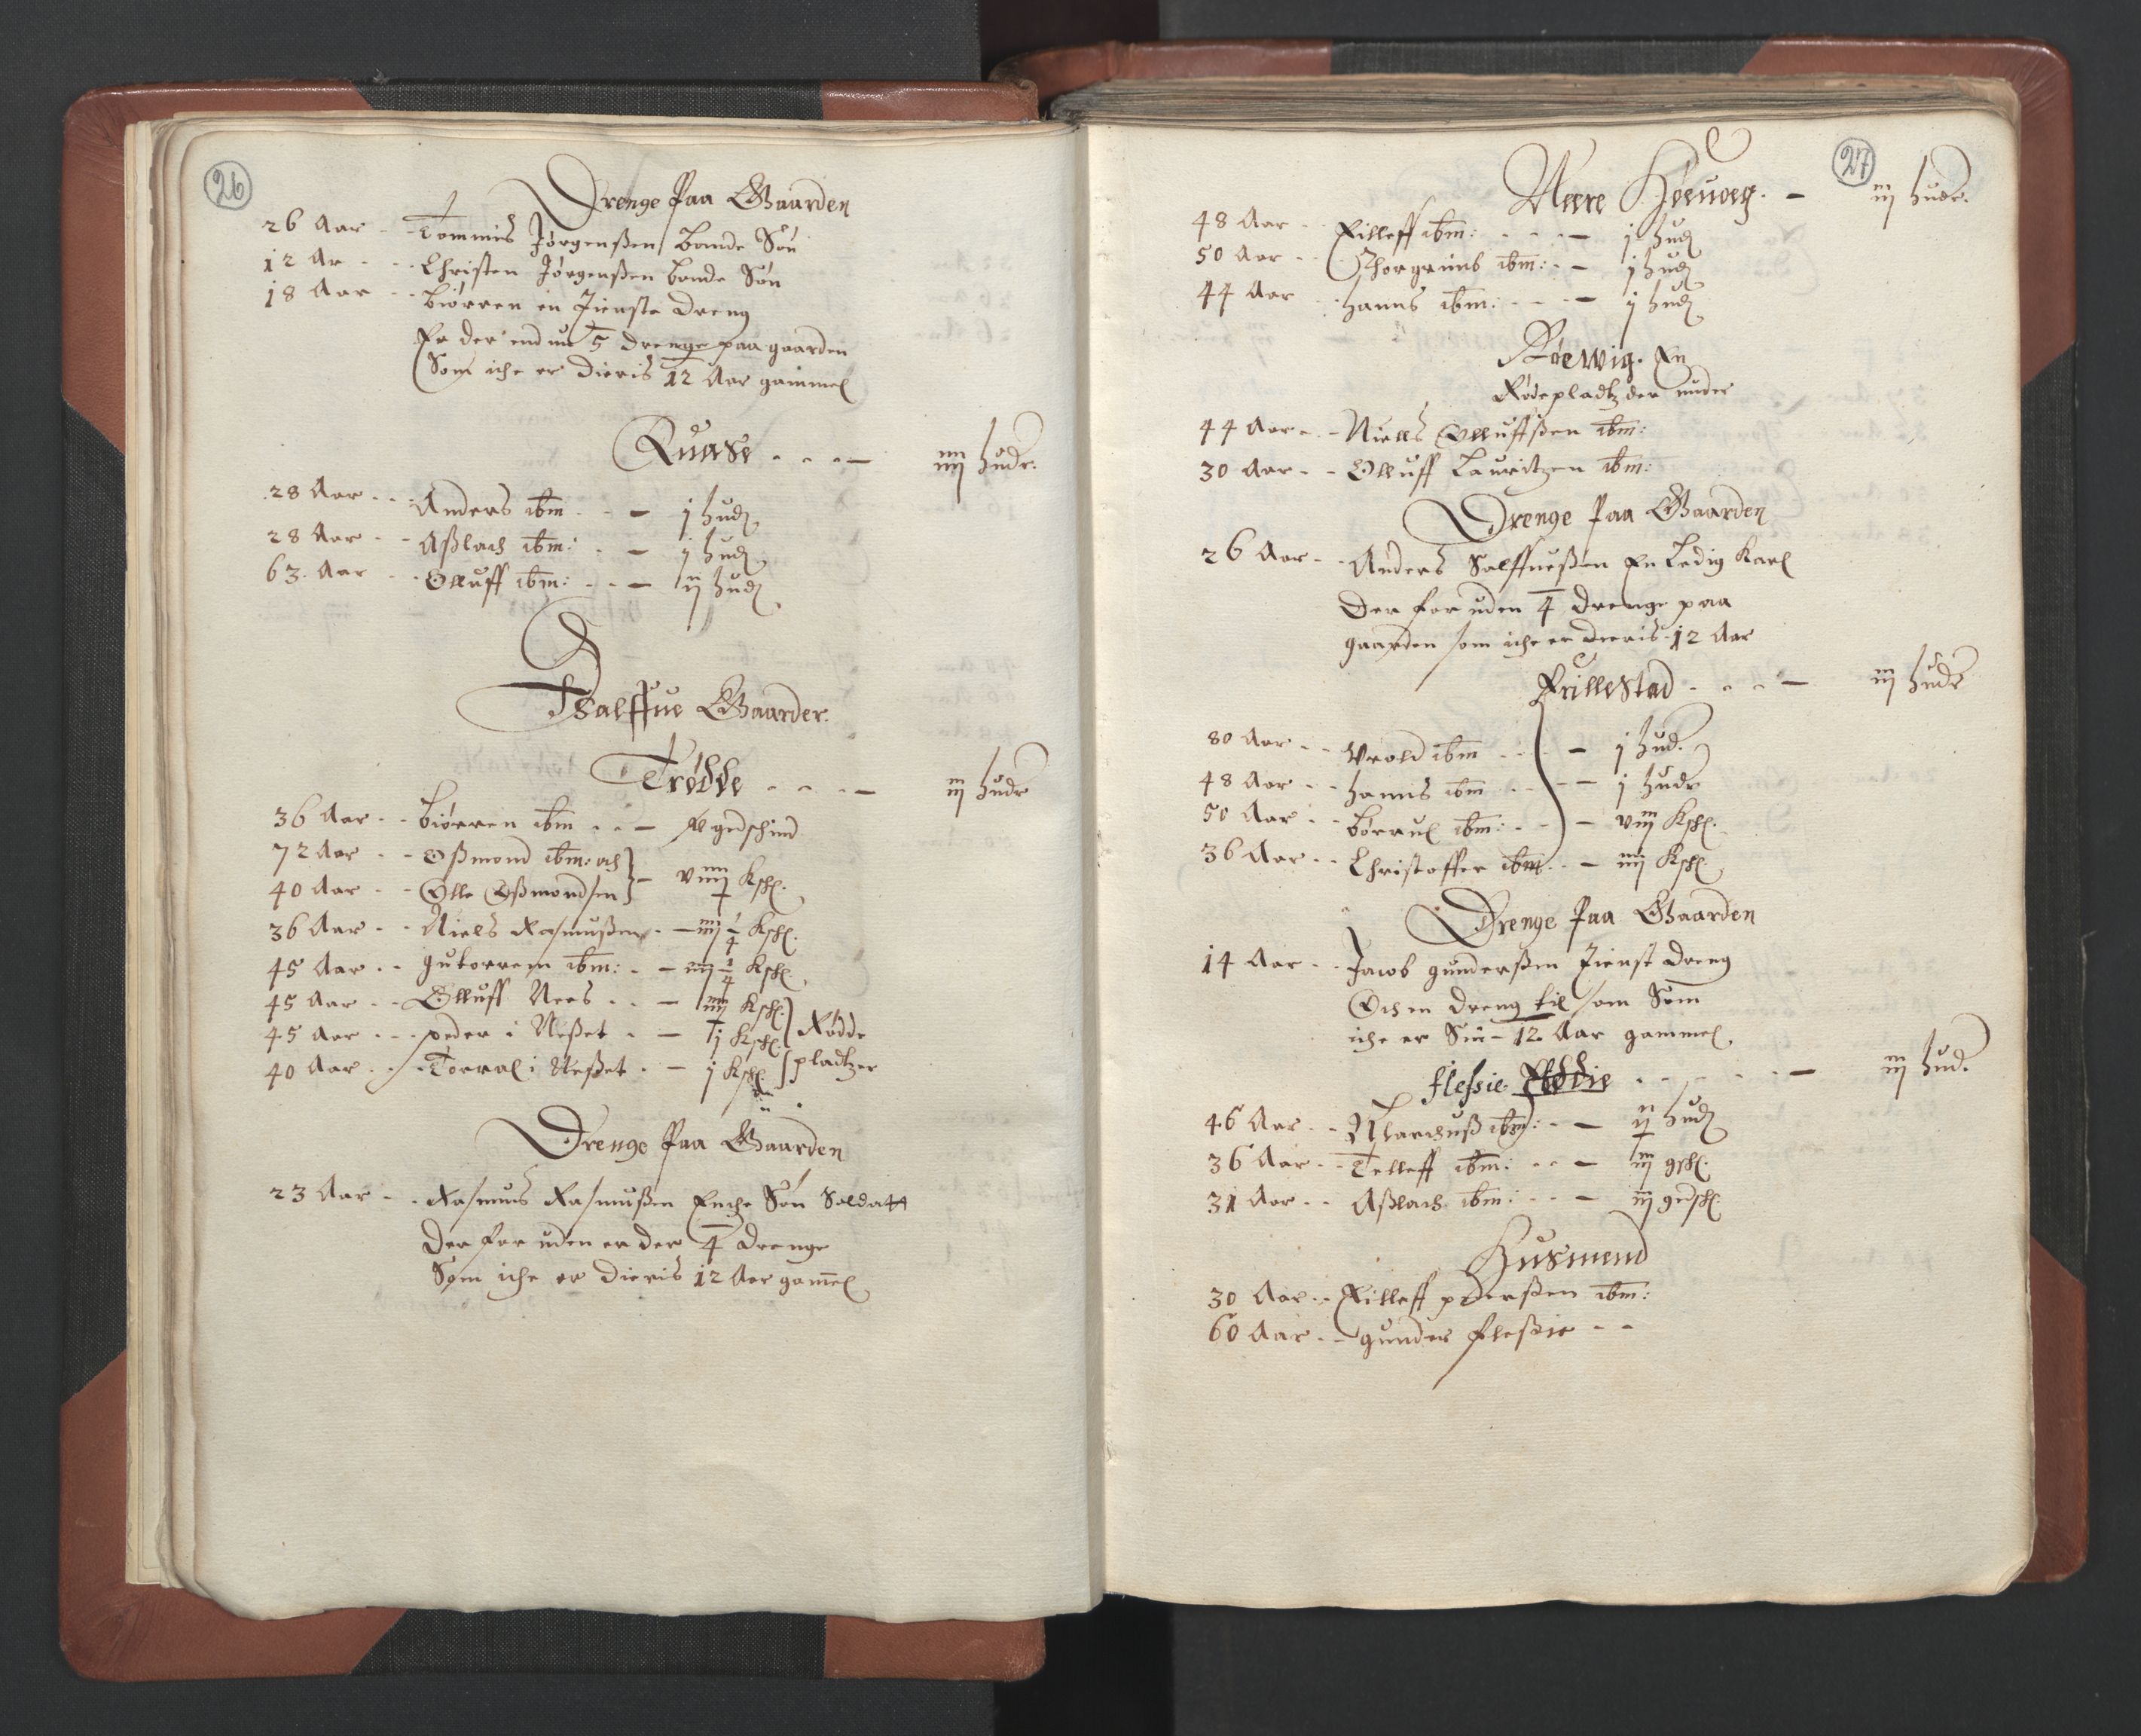 26
Drenge Paa Gaarden
26 Aar - - Tommis Jørgenßen bonde Søn
12 Ar - - Christen Jørgenßen bonde Søn
18 Aar - - Biørren en Tienste Dreng
Er der end nu 5 drenge paa gaarden
Som iche er Dieris 12 Aar gammel
Quase - - - - iiij hudr.
28 Aar - - Anders ibm - - - j hud
28 Aar - - Aßlach ibm: - - j hud
63. Aar - - Olluff ibm: - - - ij hud
Halffue Gaarder.
Trødde - - - - iij hudr
36 Aar - - Biørren ibm - - - gedschind
72 Aar - - Oßmond ibm: och
40 Aar - - Olle Oßmondsen - viiij Kschl.
36 Aar - - Niels Rasmußen - - iiij 1/4 Kschl.
45 Aar - - gutorrem ibm: - - Kschl.
45 Aar - - Olluff Nees - - - iiij Kschl.
45 Aar - - peder i Neßet - - j Kschl. Rødde
40 Aar - - Torral i Neßet - - j Kschl. pladtzer
Drenge Paa Gaarden
23 Aar - - Rasmus Rasmußen Enche Søn Soldatt
Der for uden er der 4 drenge
Som iche er Dieris 12 Aar gamel
27
Meere Høeuoeg. - iij hudr.
48 Aar - - Eilleff ibm: - - - - j hud
50 Aar - - Thorgrimb ibm: - - j hud
44 Aar - - hanns ibm: - - - j hud
Røewig. En
Rødepladtz der under
44 Aar - - Niells Olluffßen ibm:
30 Aar - - Olluff Lauritzen ibm:
Drenge Paa Gaarden
26 Aar - - Anders Salffueßen En Ledig Karl
Der for uden 4 drenge paa
gaarden som iche er dieris 12 Aar
Frillestad - - - - iij hudr
80 Aar - - Vrold ibm - - - j hud.
48 Aar - - hanns ibm - - - j hudr
50 Aar - - Børrul ibm: - - viij Kschl.
36 Aar - - Christoffer ibm - - iiij Kschl.
Drenge Paa Gaarden
14 Aar - - Jacob gunderßen Tienst Dreng
Och en Dreng til som Som
iche er Sin 12 Aar gammel
flessie - - - - - iij hud.
46 Aar - - Marchuß ibm: - - ij hud
36 Aar - - Telleff ibm: - - - iij gschl.
31 Aar - - Aßlach ibm: - - - iij gedschl
Husmend
30 Aar - - Eilleff pederßen ibm:
60 Aar - - gunder fleßie - -